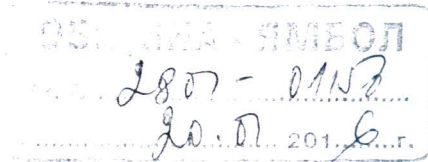 ОБЩИНА - ЯМБОЛ
2801-
20.01 2016 г.